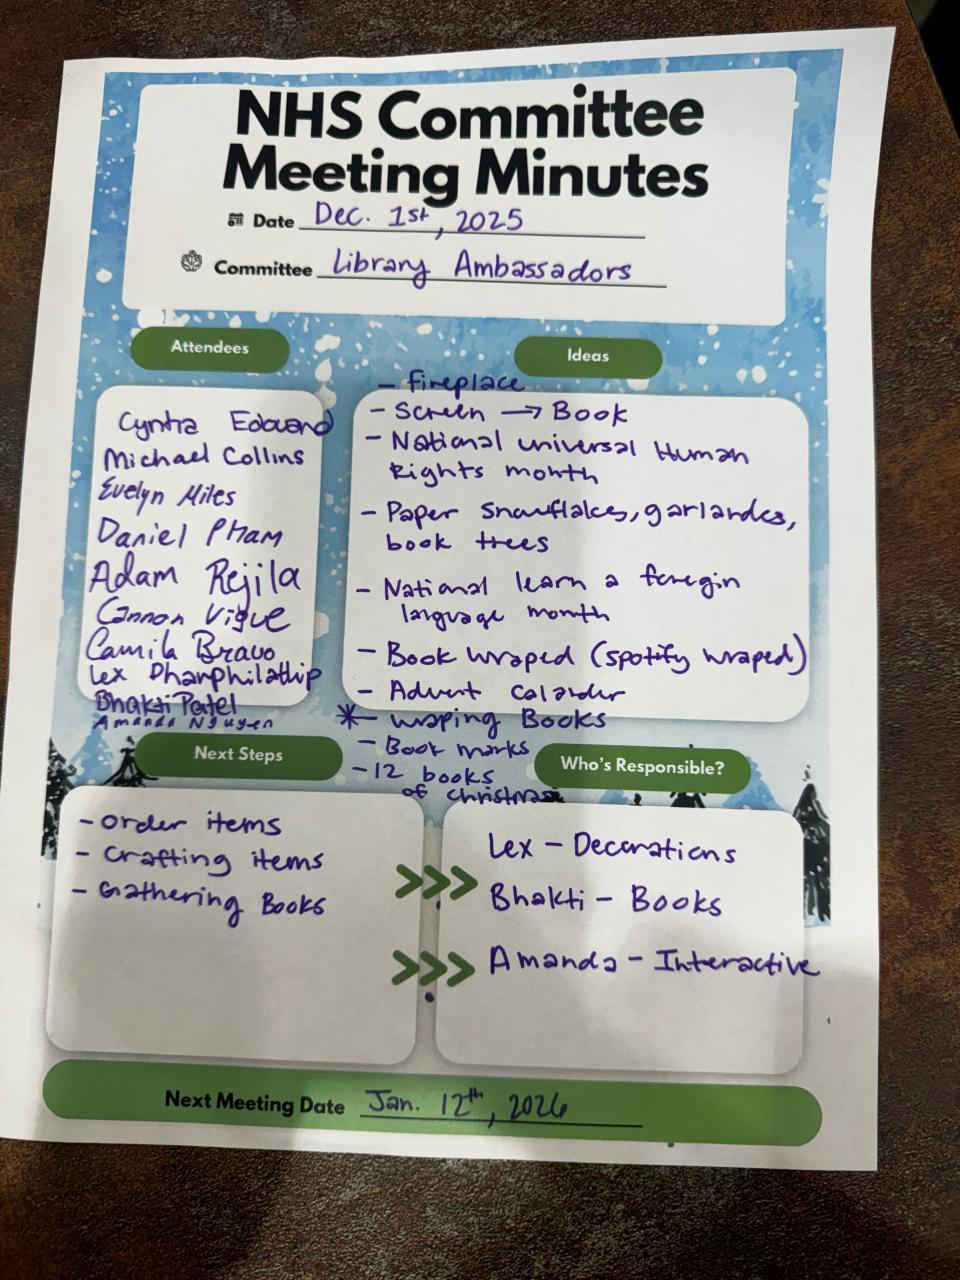 NHS Committee
Meeting Minutes
Date Dec. 1st, 2025
Committee Library Ambassadors
Attendees
Cyntra Edouard
Michael Collins
Evelyn Miles
Daniel Pham
Adam Rejila
Cannon Vigue
Camila Bravo
Lex Phanphilathip
Bhakti Patel
Amanda Nguyen
Ideas
- fireplace
- Screen → Book
- National universal Human
Rights month
- Paper snowflakes, garlandes,
book trees
- National learn a foregin
language month
- Book wraped (spotify wraped)
- Advent calander
*- wraping Books
- Book marks
- 12 books
of christmas
Next Steps
- order items
- Crafting items
- Gathering Books
Who's Responsible?
Lex - Decorations
Bhakti - Books
Amanda - Interactive
Next Meeting Date Jan. 12th, 2026